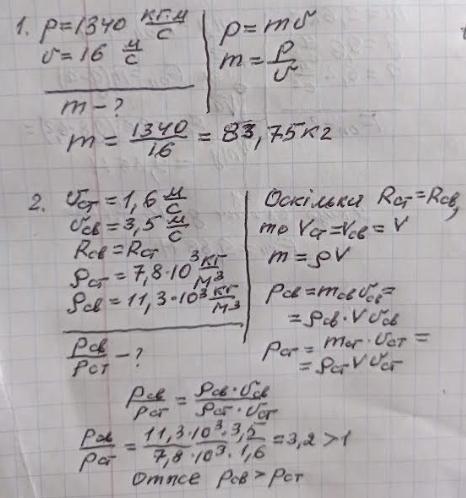 1. p=1340 кг·м/с
υ=16 м/с
m - ?
p = mυ
m = p/υ
m = 1340/16 = 83,75кг
2. υст = 1,6 м/с
υсв = 3,5 м/с
Rсв = Rст
ρст = 7,8·10³ кг/м³
ρсв = 11,3·10³ кг/м³
pсв/pст - ?
Оскільки Rст = Rсв,
то Vст = Vсв = V
m = ρV
pсв = mсв υсв =
= ρсв · V υсв
pст = mст · υст =
= ρст V υст
pсв/pст = ρсв · υсв/ρст · υст
pсв/pст = 11,3·10³·3,5/7,8·10³·1,6 = 3,2 > 1
Отже pсв > pст